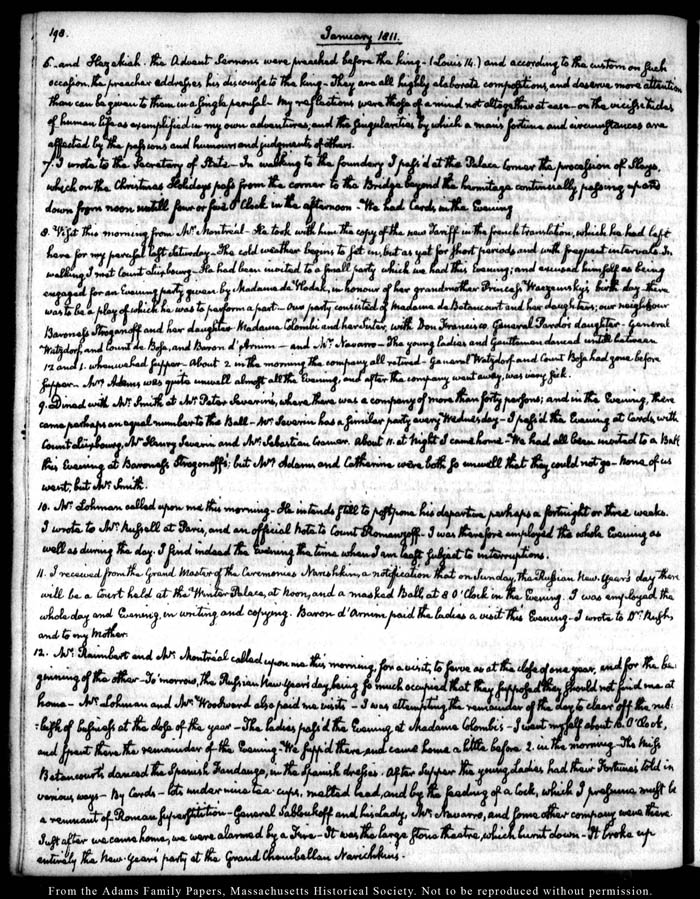 198.
January 1811.
6. and Hezekiah. the Advent Sermons were preached before the king - (Louis 14.) and according to the custom on such
occasion, the preacher addresses his discourse to the king - They are all highly elaborate compositions, and deserve more attention
than can be given to them in a single perusal - My reflections were those of a mind not altogether at ease - on the vicissitudes
of human life as exemplified in my own adventures, and the singularities by which a man's fortune and circumstances are
affected by the passions and humours and judgments of others.
7. I wrote to the Secretary of State - In walking to the foundery I pass'd at the Palace Corner the procession of Slays,
which on the Christmas Holidays pass from the corner to the Bridge beyond the hermitage continually, passing up and
down from noon untill four or five O'Clock in the afternoon - We had Cards in the Evening
8. Visit this morning from Mr Montréal - He took with him the copy of the new Tariff in the french translation, which he had left
here for my perusal last Saturday - The cold weather begins to set in, but as yet for short periods and with frequent intervals. In
walking I met Count Luxbourg - He had been invited to a small party which we had this Evening; and excused himself as being
engaged for an Evening party given by Madame de Vlodek, in honour of her grandmother Princess Waezemsky's birth day there
was to be a play of which he was to perform a part - Our party consisted of Madame de Betancourt and her daughters; our neighbour
Baroness Strogonoff and her daughter Madame Colombi and her sister, with Don Francisco. General Pardo's daughter - General
Watzdorf, and Count de Bose, and Baron d'Arnim - and Mr Navarro - The young ladies and Gentlemen danced untill between
12 and 1. when we had supper - About 2 in the morning the company all retired - General Watzdorf and Count Bose had gone before
supper - Mrs Adams was quite unwell almost all the Evening, and after the company went away, was very sick.
9. Dined with Mr Smith at Mr Peter Severin's, where there was a company of more than forty persons; and in the Evening, there
came perhaps an equal number to the Ball - Mr Severin has a similar party every Wednesday - I pass'd the Evening at Cards, with
Count Luxbourg, Mr Henry Severin and Mr Sebastian Cramer. About 11. at Night I came home - We had all been invited to a Ball
this Evening at Baroness Strogonoff's; but Mrs Adams and Catherine were both so unwell that they could not go - None of us
went, but Mr Smith.
10. Mr Lohman called upon me this morning - He intends still to postpone his departure, perhaps a fortnight or three weeks.
I wrote to Mr Russell at Paris, and an official Note to Count Romanzoff - I was therefore employed the whole Evening as
well as during the day. I find indeed the Evening the time when I am least subject to interruptions.
11. I received from the Grand Master of the Ceremonies Narishkin, a notification that on Sunday, the Russian New-Year's day there
will be a Court held at the Winter Palace, at Noon, and a masked Ball, at 8 O'Clock in the Evening. I was employed the
whole day and Evening, in writing and copying. Baron d'Arnim paid the ladies a visit this Evening - I wrote to Dr Rush,
and to my Mother.
12. Mr Raimbert and Mr Montréal called upon me this morning, for a visit, to serve as at the close of one year, and for the be-
ginning of the other - To morrow, the Russian New Year's day, being so much occupied that they supposed they should not find me at
home - Mr Lohman and Mr Woodward also paid me visits - I was attempting the remainder of the day to clear off the rub-
-bish of business at the close of the year - The ladies pass'd the Evening at Madame Colombi's - I went myself about 10. O'Clock,
and spent there the remainder of the Evening. We supp'd there, and came home a little before 2. in the morning - The Miss
Betancourts danced the Spanish Fandango, in the Spanish dresses - After Supper the young Ladies had their Fortunes told in
various ways - By Cards - lots under nine tea-cups, melted lead, and by the feeding of a Cock, which I presume must be
a remnant of Roman superstition - General Sablukoff and his lady, Mr Navarro, and some other company were there.
Just after we came home, we were alarmed by a Fire - It was the large stone theatre, which burnt down - It broke up
entirely the New-Year's party at the Grand Chambellan Narishkin's.
From the Adams Family Papers, Massachusetts Historical Society. Not to be reproduced without permission.